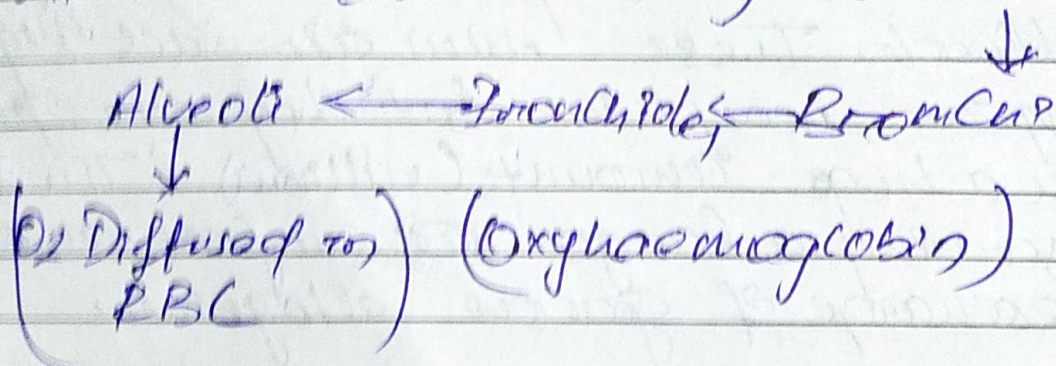 Alveoli ← Bronchioles ← Bronchi
(O2 Diffused in) (Oxyhaemoglobin)
RBC